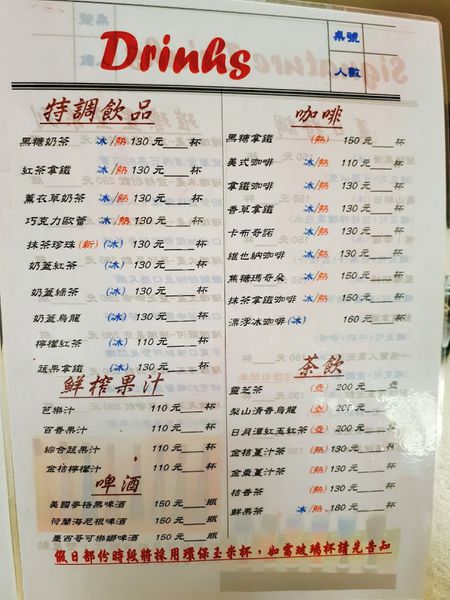 Drinks
桌號
人數
特調飲品
黑糖奶茶 冰/熱 130 元____杯
紅茶拿鐵 冰/熱 130 元____杯
薰衣草奶茶 冰/熱 130 元____杯
巧克力歐蕾 冰/熱 130 元____杯
抹茶珍珠(新) (冰) 130 元____杯
奶蓋紅茶 (冰) 130 元____杯
奶蓋綠茶 (冰) 130 元____杯
奶蓋烏龍 (冰) 130 元____杯
檸檬紅茶 (冰) 130 元____杯
蔬果拿鐵 (冰) 130 元____杯
鮮榨果汁
芭樂汁 110 元____杯
百香果汁 110 元____杯
綜合蔬果汁 110 元____杯
金桔檸檬汁 110 元____杯
啤酒
美國麥格黑啤酒 150 元____瓶
荷蘭海尼根啤酒 150 元____瓶
墨西哥可樂娜啤酒 150 元____瓶
咖啡
黑糖拿鐵 (熱) 150 元____杯
美式咖啡 冰/熱 110 元____杯
拿鐵咖啡 冰/熱 130 元____杯
香草拿鐵 冰/熱 130 元____杯
卡布奇諾 冰/熱 130 元____杯
維也納咖啡 冰/熱 130 元____杯
焦糖瑪奇朵 冰/熱 150 元____杯
抹茶拿鐵咖啡 冰/熱 150 元____杯
漂浮冰咖啡 (冰) 160 元____杯
茶飲
靈芝茶 (壺) 200 元____壺
梨山清香烏龍 (壺) 200 元____杯
日月潭紅玉紅茶 (壺) 200 元____杯
金桔薑汁茶 (熱) 130 元____杯
金棗薑汁茶 (熱) 130 元____杯
桔香茶 (熱) 130 元____杯
鮮果茶 冰/熱 180 元____杯
假日部份時段將採用環保玉米杯，如需玻璃杯請先告知